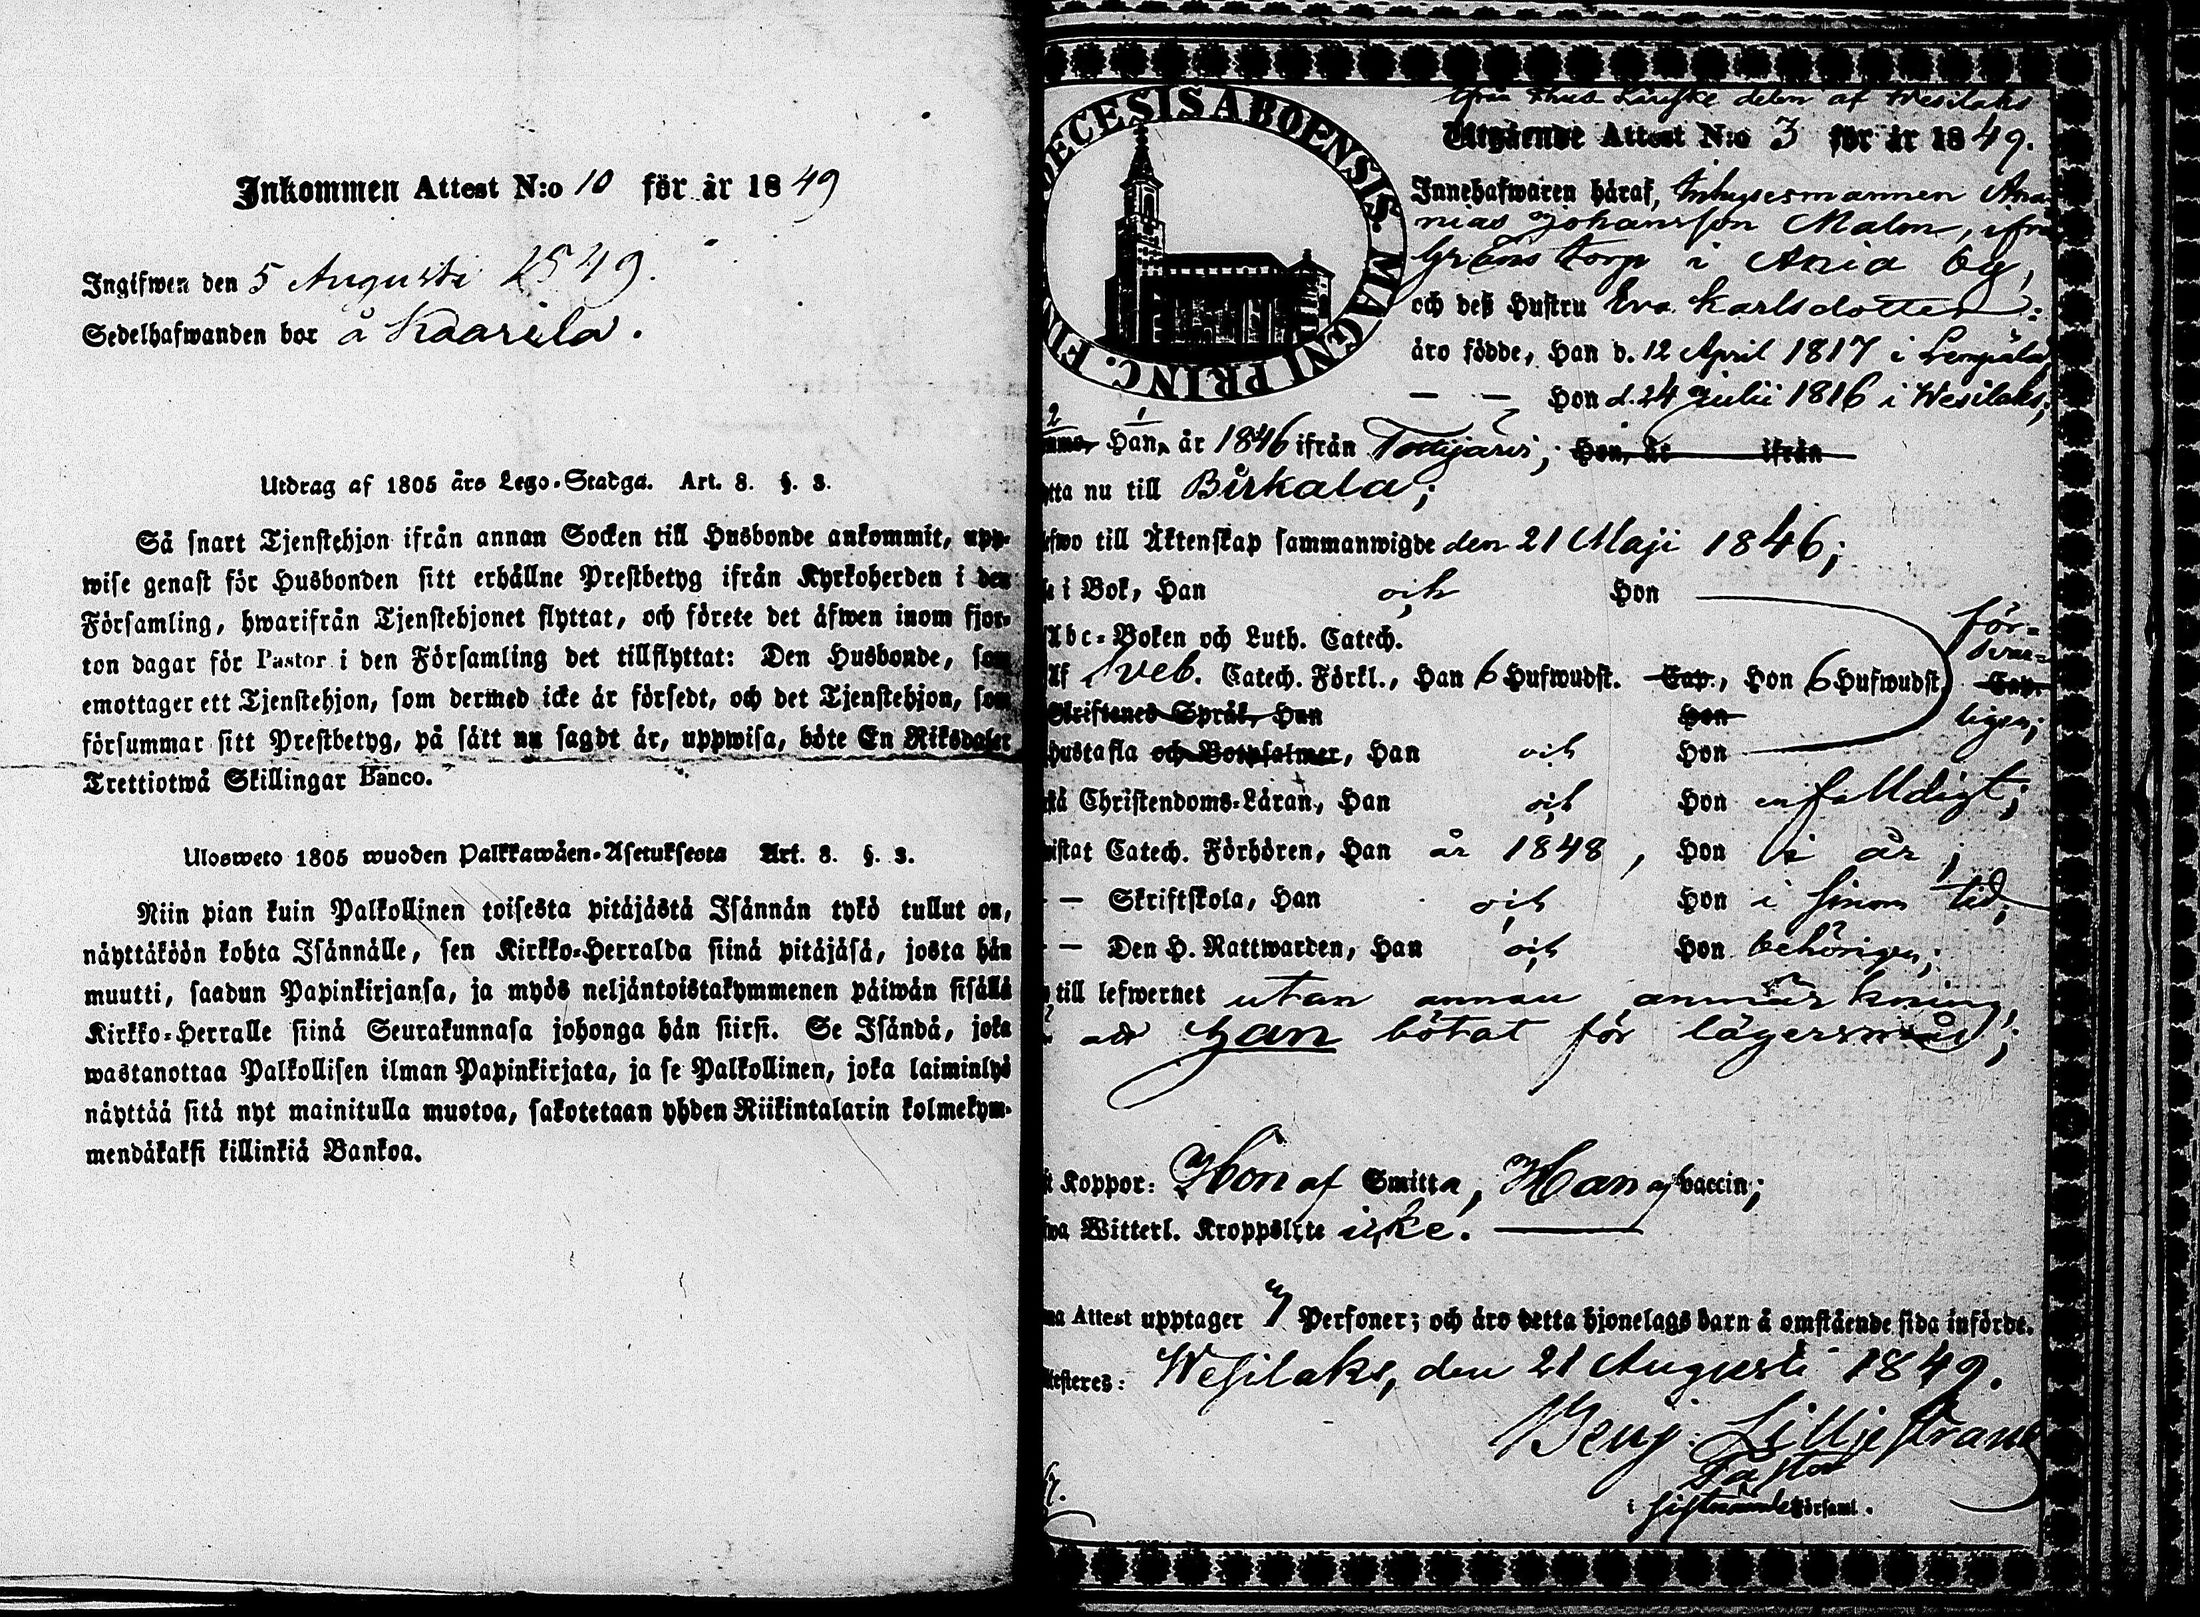 Inkommen Attest N:o 10 för år 1849
Ingifwen den 5 Augusti 1849.
Sedelhafwanden bor å Kaarila.
Utdrag af 1805 års Lego-Stadga. Art. 8. §. 3.
Så snart Tjenstehjon ifrån annan Socken till Husbonde ankommit, upp-
wise genast för Husbonden sitt erhållne Prestbetyg ifrån Kyrkoherden i den
Församling, hwarifrån Tjenstehjonet flyttat, och förete det äfwen inom fjor-
ton dagar för Pastor i den Församling det tillflyttat: Den Husbonde, som
emottager ett Tjenstehjon, som dermed icke är försedt, och det Tjenstehjon, som
försummar sitt Prestbetyg, på sätt nu sagdt är, uppwisa, böte En Riksdaler
Trettiotwå Skillingar Banco.
Ulosweto 1805 wuoden Palkkawäen-Asetuksesta Art. 8. §. 3.
Niin pian kuin Palkollinen toisesta pitäjästä Isännän tykö tullut on,
näyttäköön kohta Isännälle, sen Kirkko-Herralda siinä pitäjäsä, josta hän
muutti, saadun Papinkirjansa, ja myös neljäntoistakymmenen päiwän sisällä
Kirkko-Herralle siinä Seurakunnasa johonga hän siirsi. Se Isändä, joka
wastanottaa Palkollisen ilman Papinkirjata, ja se Palkollinen, joka laiminlyö
näyttää sitä nyt mainitulla muotoa, sakotetaan yhden Riikintalarin kolmekym-
mendäkaksi killinkiä Bankoa.
DECESIS ABOENSIS. MAGNI PRINC. FIN
delen af Wesilaks
Utgående Attest N:o 3 för år 1849.
Innehafwaren häraf, Inhysesmannen Ana-
nias Johansson Malm, ifrån
torp i Ania by,
och deß Hustru Eva Karlsdotter:
äro födde, Han d. 12 April 1817 i Lempälä,
— — Hon d. 24 Julii 1816 i Wesilaks;
Han, år 1846 ifrån Tottijärvi; Hon, år ifrån
tta nu till Birkala;
fwo till Äktenskap sammanwigde den 21 Maji 1846;
i Bok, Han och Hon
Abc-Boken och Luth. Catech.
Af Sveb. Catech. Förkl., Han 6 Hufwudst. Cap., Hon 6 Hufwudst. Cap.
för-
svar-
ligen;
Skriftenes Språk, Han Hon
hustafla och Botpsalmer, Han och Hon
stå Christendoms-Läran, Han och Hon enfalldigt;
wistat Catech. Förhören, Han år 1848, Hon i år;
— — Skriftskola, Han och Hon i sinom tid;
— — Den H. Nattwarden, Han och Hon behörigen;
till lefwernet utan annan anmärkning
att Han bötat för lägersmål;
t Koppor: Hon af Smitta, Han af vaccin;
fwa Witterl. Kroppslyte icke.
na Attest upptager 7 Personer; och äro detta hjonelags barn å omstående sida införde.
Attesteres: Wesilaks, den 21 Augusti 1849.
Benj: Lilljestrand
Pastor
i församl.